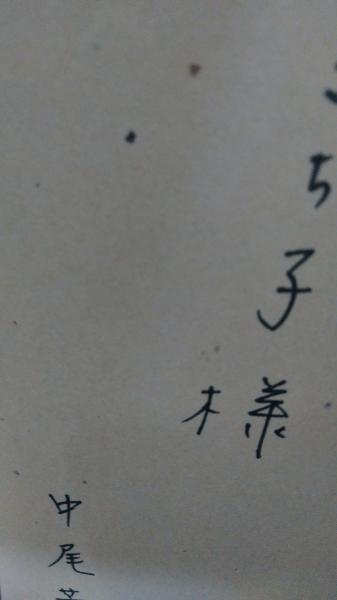 ち子様
中尾